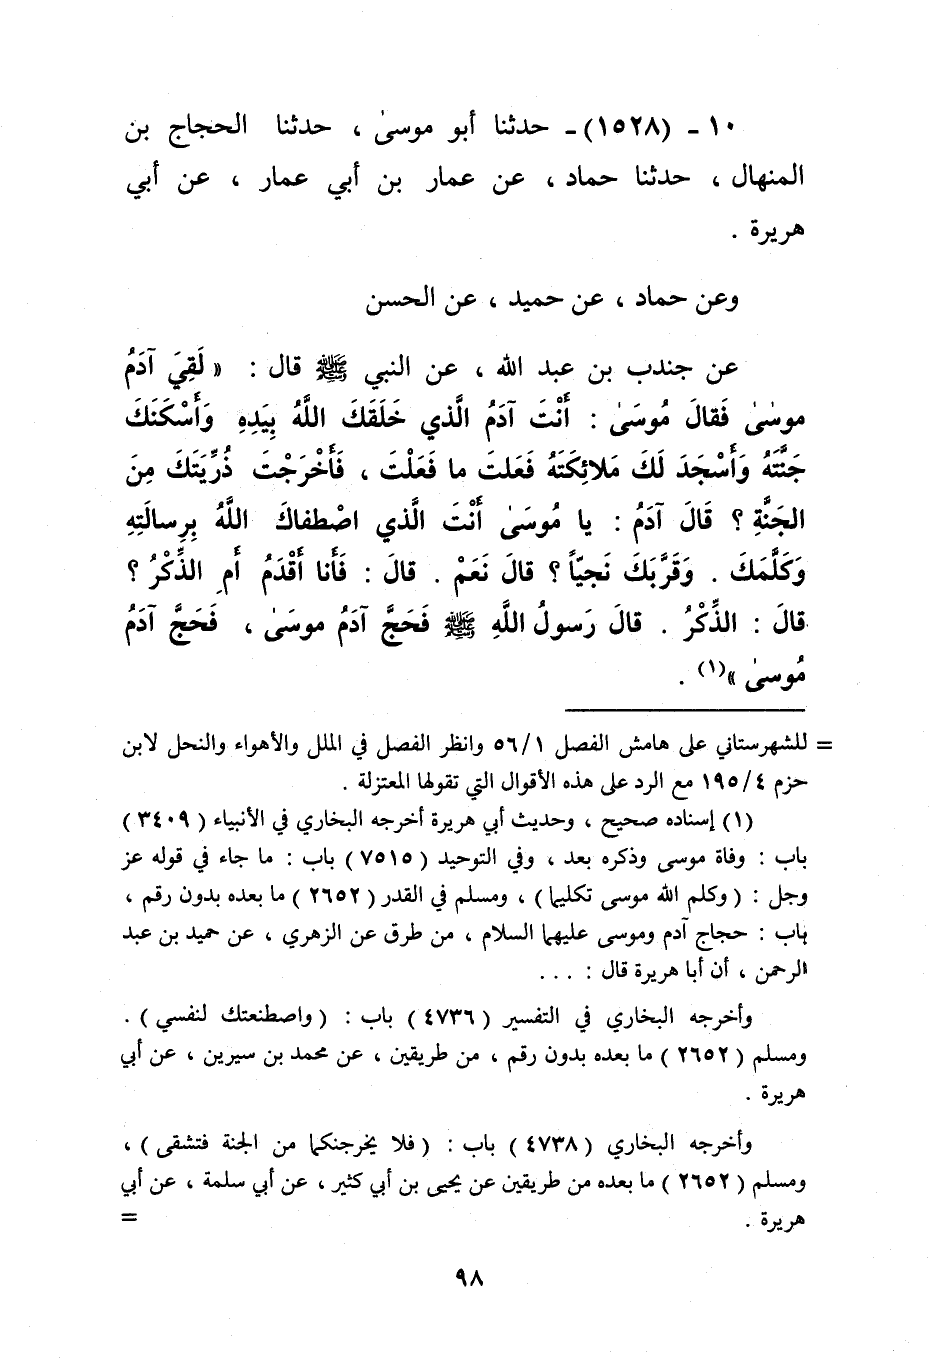 ١٠ - (١٥٢٨) - حدثنا أبو موسىٰ ، حدثنا الحجاج بن
المنهال ، حدثنا حماد ، عن عمار بن أبي عمار ، عن أبي
هريرة .
وعن حماد ، عن حميد ، عن الحسن
عن جندب بن عبد الله ، عن النبي ﷺ قال : « لَقِيَ آدَمُ
موسٰىٰ فَقالَ مُوسَىٰ : أَنْتَ آدَمُ الَّذي خَلَقَكَ اللَّهُ بِيَدِهِ وَأَسْكَنَكَ
جَنَّتَهُ وَأَسْجَدَ لَكَ مَلائِكَتَهُ فَعَلتَ ما فَعَلْتَ ، فَأَخْرَجْتَ ذُرِّيَتَكَ مِنَ
الجَنَّةِ ؟ قَالَ آدَمُ : يا مُوسَىٰ أَنْتَ الَّذي اصْطفاكَ اللَّهُ بِرِسالَتِهِ
وَكَلَّمَكَ . وَقَرَّبَكَ نَجيّاً ؟ قالَ نَعَمْ . قالَ : فَأَنا أَقْدَمُ أَمِ الذِّكْرُ ؟
قالَ : الذِّكْرُ . قالَ رَسولُ اللَّهِ ﷺ فَحَجَّ آدَمُ موسَىٰ ، فَحَجَّ آدَمُ
مُوسىٰ »(١) .
= للشهرستاني على هامش الفصل ٥٦/١ وانظر الفصل في الملل والأهواء والنحل لابن
حزم ١٩٥/٤ مع الرد على هذه الأقوال التي تقولها المعتزلة .
(١) إسناده صحيح ، وحديث أبي هريرة أخرجه البخاري في الأنبياء ( ٣٤٠٩ )
باب : وفاة موسى وذكره بعد ، وفي التوحيد ( ٧٥١٥ ) باب : ما جاء في قوله عز
وجل : ( وكلم الله موسى تكليما ) ، ومسلم في القدر ( ٢٦٥٢ ) ما بعده بدون رقم ،
باب : حجاج آدم وموسى عليهما السلام ، من طرق عن الزهري ، عن حميد بن عبد
الرحمن ، أن أبا هريرة قال : . . .
وأخرجه البخاري في التفسير ( ٤٧٣٦ ) باب : ( واصطنعتك لنفسي ) .
ومسلم ( ٢٦٥٢ ) ما بعده بدون رقم ، من طريقين ، عن محمد بن سيرين ، عن أبي
هريرة .
وأخرجه البخاري ( ٤٧٣٨ ) باب : ( فلا يخرجنكما من الجنة فتشقى ) ،
ومسلم ( ٢٦٥٢ ) ما بعده من طريقين عن يحيى بن أبي كثير ، عن أبي سلمة ، عن أبي
هريرة . =
٩٨